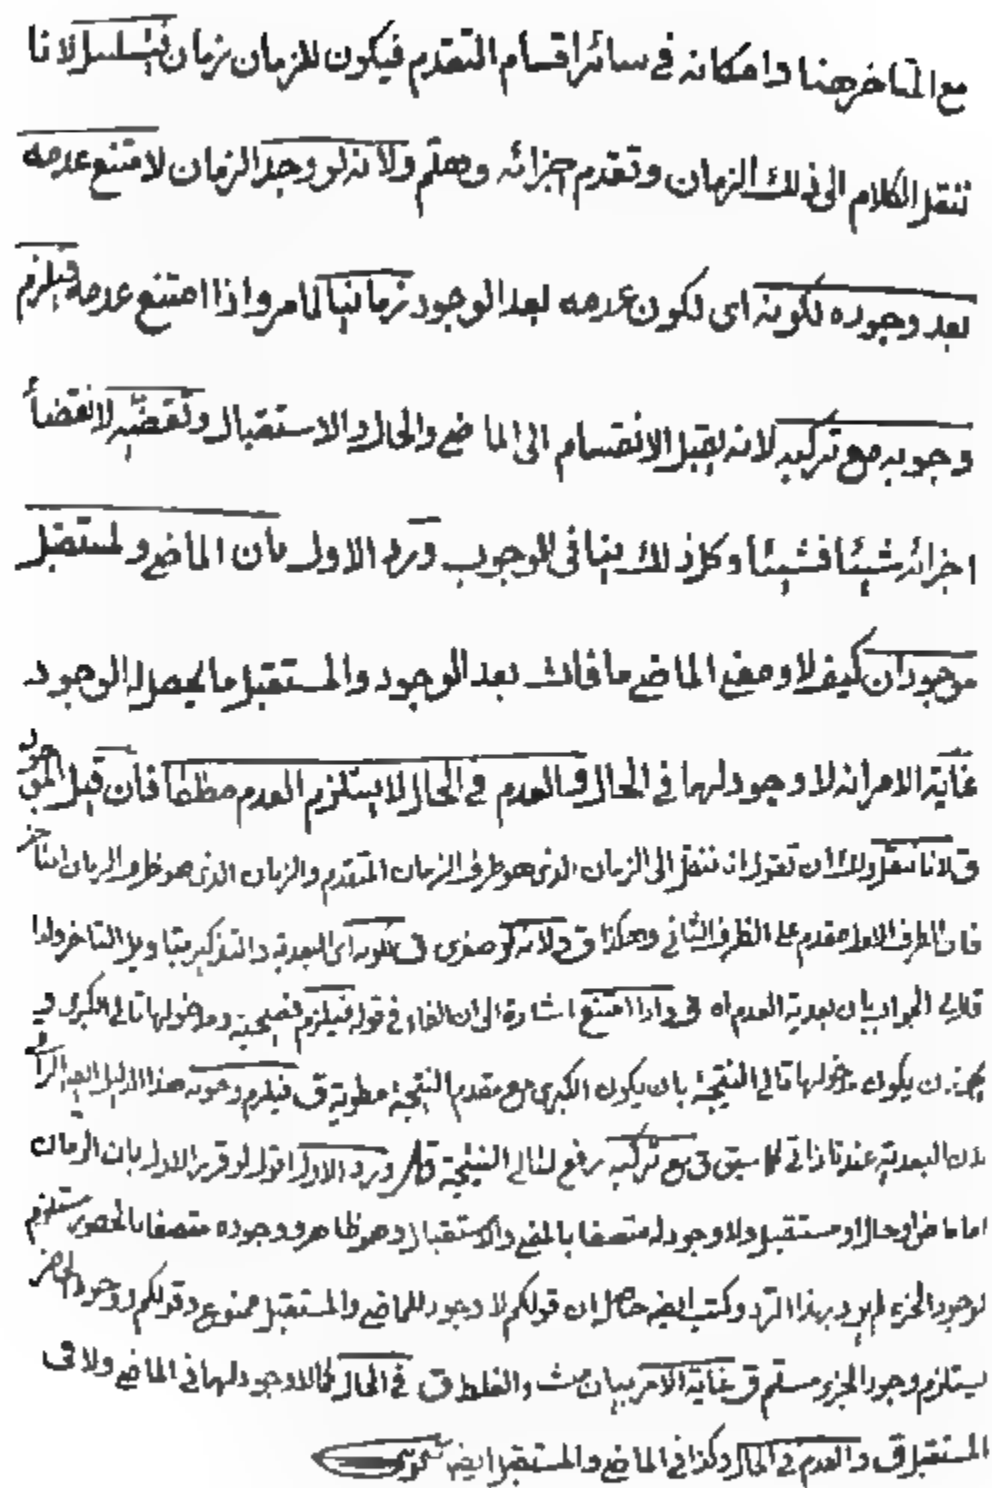 مع المتاخر هنا وامكانه في سائر اقسام التقدم فيكون للزمان زمان فيتسلسل لانا
ننقل الكلام الى ذلك الزمان وتقدم اجزائه وهلم ولانه لو وجد الزمان لامتنع عدمه
بعد وجوده لكونه اى لكون عدمه بعد الوجود زمانيا لما مر واذا امتنع عدمه فيلزم
وجوبه مع تركبه لانه يقبل الانقسام الى الماضي والحال والاستقبال وتقضيه لانقضأ
اجزائه شيئا فشيئا وكل ذلك ينافى الوجوب ورد الاول بان الماضي والمستقبل
موجودان كيف لا ومعنى الماضي ما فات بعد الوجود والمستقبل ما يحصل له الوجود
غاية الامر انه لا وجود لهما في الحال والعدم في الحال لا يستلزم العدم مطلقا فان قيل الموجود
ق لانا ننقل ولك ان تقول انه ننقل الى الزمان الذى هو ظرف الزمان المتقدم والزمان الذى هو ظرف الزمان المتاخر
فان الظرف الاول مقدم على الظرف الثاني وهكذا ق ولانه لو صغرى ق لكونه اى البعدية والتذكير بتاويل التاخر ولذا
قال في الجواب بان بعدية العدم اه ق واذا امتنع اشارة الى ان الفاء في قوله فيلزم فصيحية ومدخولها تالي الكبرى و
يجوز ان يكون مدخولها تالي النتيجة بان يكون الكبرى مع مقدم النتيجة مطوية ق فيلزم وجوبه هذا الدليل
لان البعدية عندنا ذاتي كما سبق ق مع تركبه رفع لتالي النتيجة ق ورد الاول اقول لو قرر الاول بان الزمان
اما ماض او حال او مستقبل ولا وجود له متصفا بالمضي والاستقبال وهو ظاهر ووجوده متصفا بالحضور يستلزم
لوجود الجزء لم يرد بهذا الرد وكتب ايضا حاصله ان قولكم لا وجود للماضي والمستقبل ممنوع وقولكم وجود الحاضر
يستلزم وجود الجزء مسلم ق غاية الامر بيان منشاء الغلط ق في الحال كما لا وجود لهما في الماضي ولا في
المستقبل ق والعدم في الحال وكذا في الماضي والمستقبل ايضا